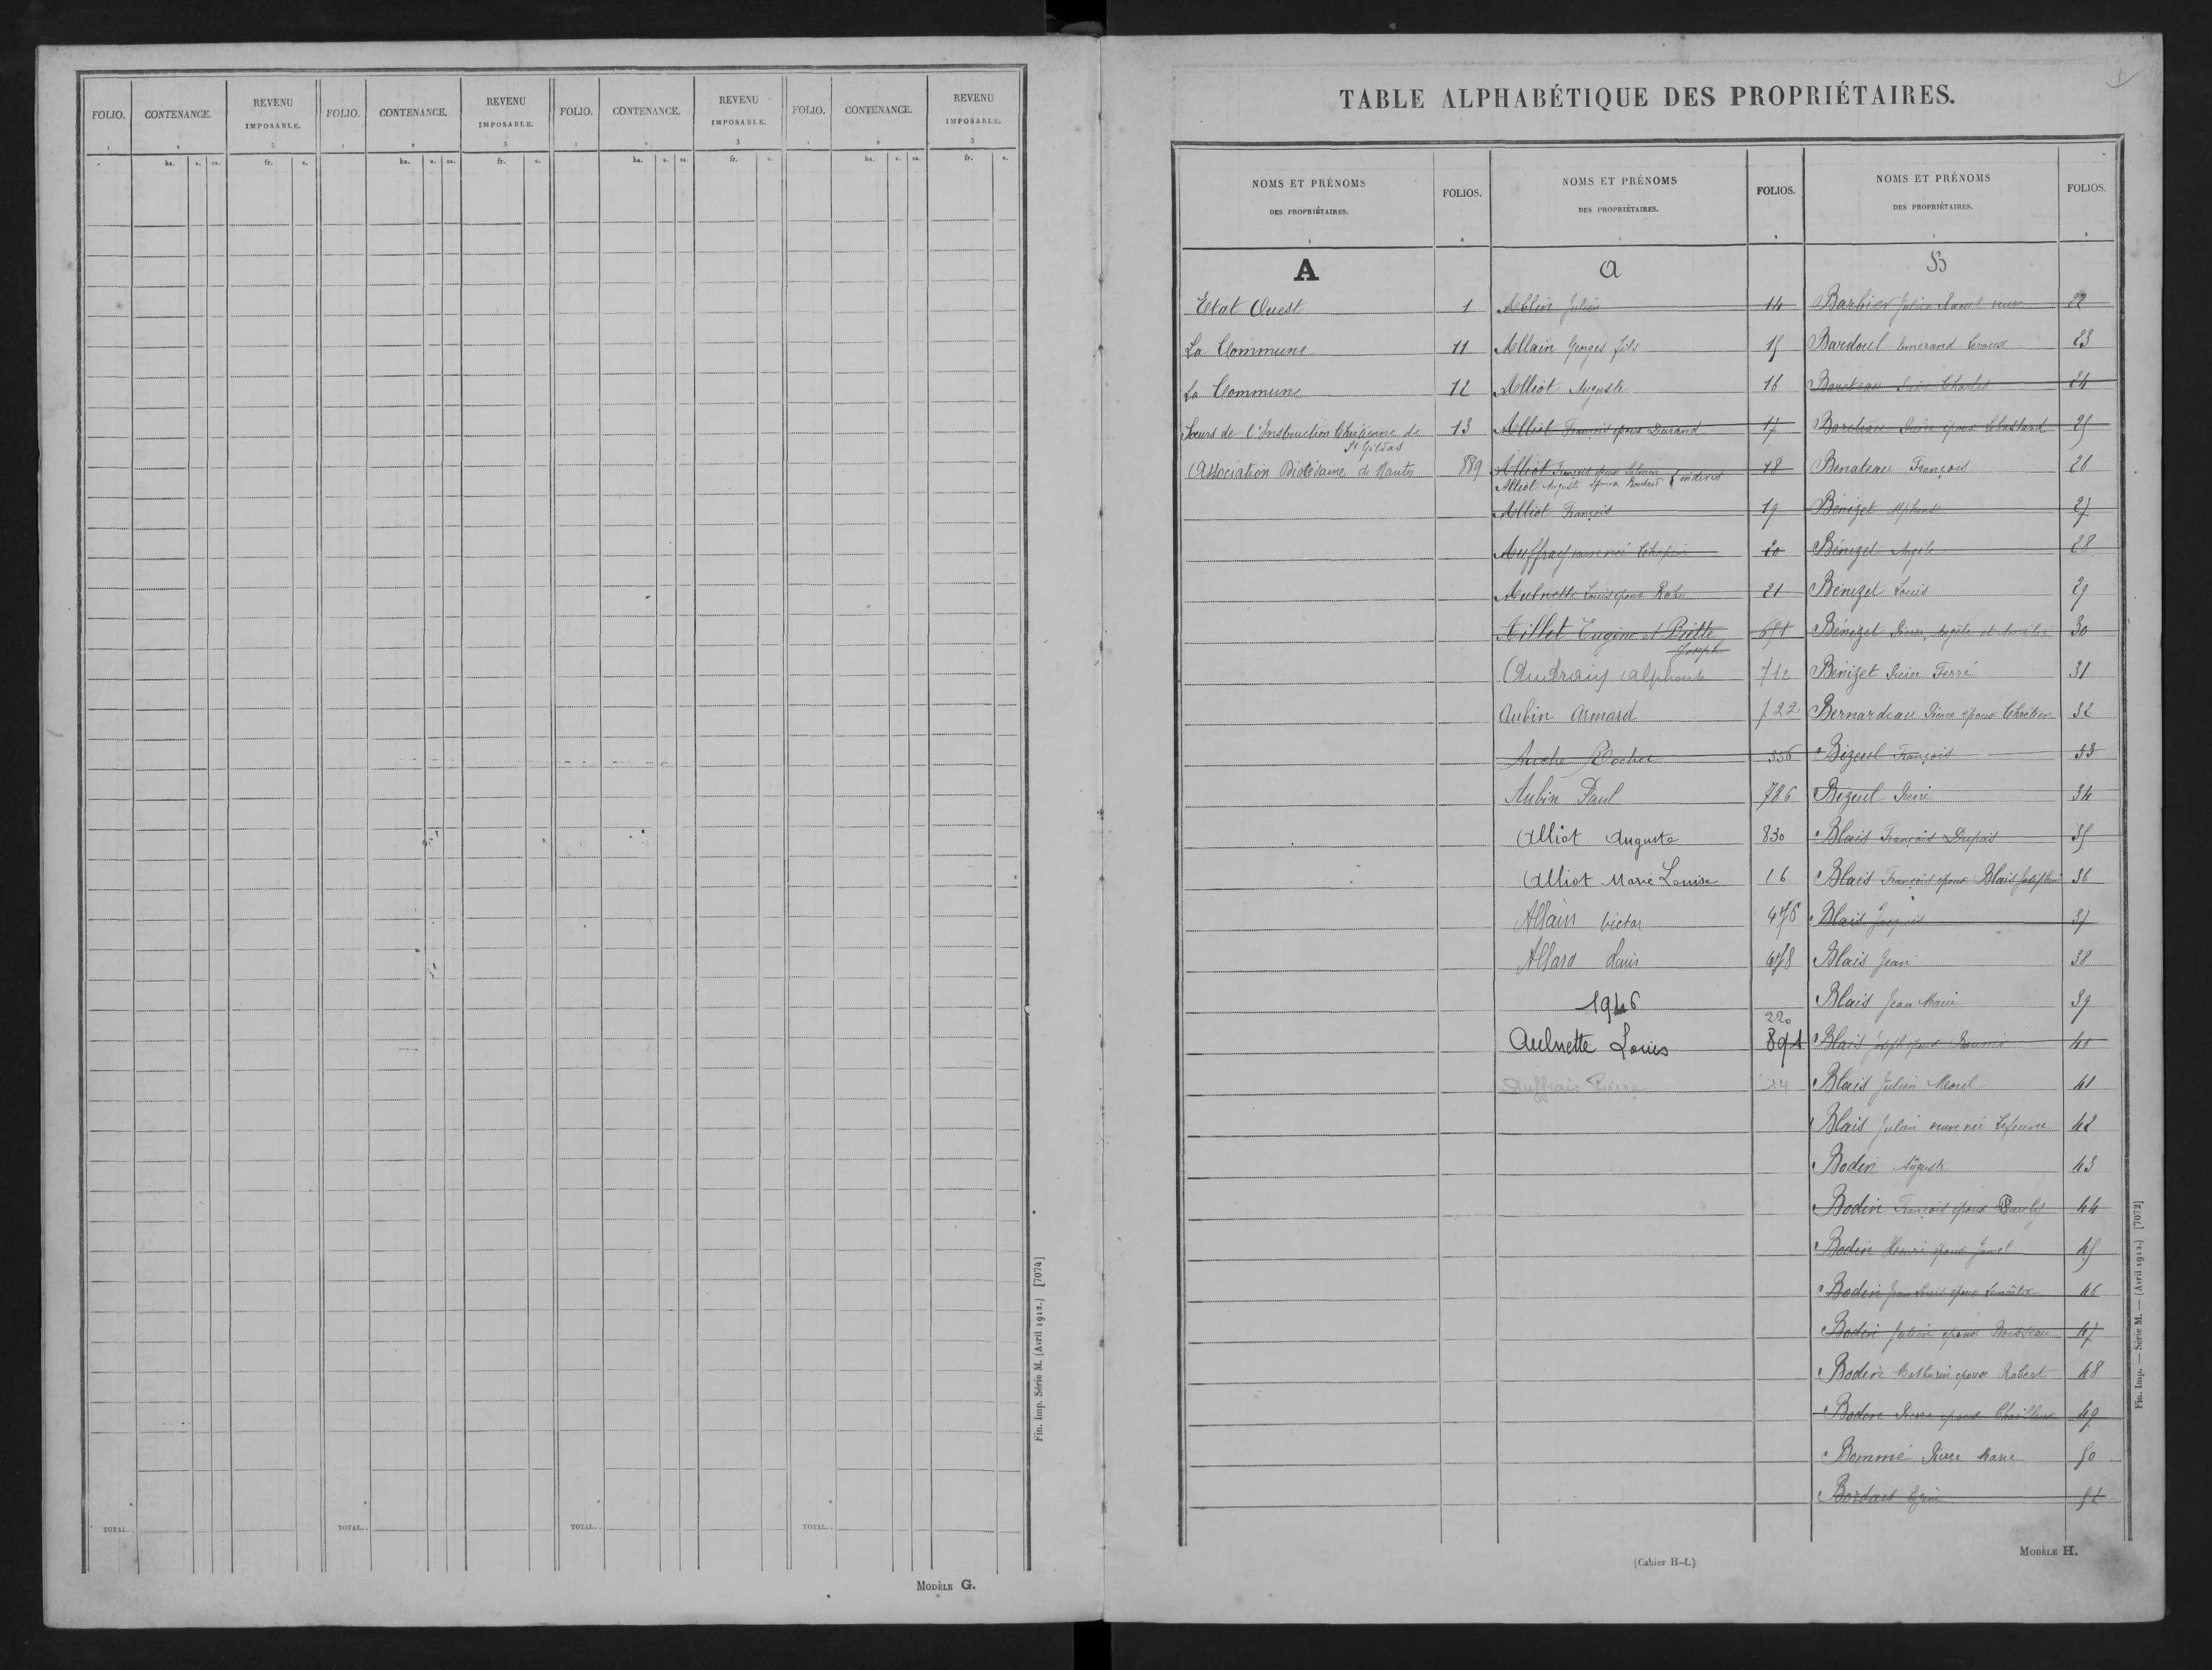 FOLIO. CONTENANCE. REVENU IMPOSABLE. FOLIO. CONTENANCE. REVENU IMPOSABLE. FOLIO. CONTENANCE. REVENU IMPOSABLE. FOLIO. CONTENANCE. REVENU IMPOSABLE.
1 2 3 1 2 3 1 2 3 1 2 3
ha. a. ca. fr. c. ha. a. ca. fr. c. ha. a. ca. fr. c. ha. a. ca. fr. c.
TOTAL.. TOTAL.. TOTAL.. TOTAL..
Fin. Imp. Série M. (Avril 1912.) [7074]
MODÈLE G.
TABLE ALPHABÉTIQUE DES PROPRIÉTAIRES.
NOMS ET PRÉNOMS DES PROPRIÉTAIRES. FOLIOS. NOMS ET PRÉNOMS DES PROPRIÉTAIRES. FOLIOS. NOMS ET PRÉNOMS DES PROPRIÉTAIRES. FOLIOS.
1 2 1 2 1 2
A
Etat Ouest 1
La Commune 11
La Commune 12
Sœurs de l'Instruction Chrétienne de
St Gildas 13
Association Diocésaine de Nantes 889
a
Ablin Julien 14
Allain Georges fils 15
Alliot Auguste 16
Alliot François époux Durand 17
Alliot François époux
Alliot Auguste époux indivis 18
Alliot François 19
Auffray veuve née 20
Aulnette Louis époux 21
Aillet Eugène et Boitte
Joseph
Alphonse 712
Aubin Armand 722
Rocher 556
Aubin Paul 786
Alliot Auguste 830
Alliot Marie Louise 16
Allain Victor 476
Allard Louis 478
1946
220
Aulnette Louis 891
Auffrais Pierre 14
B
Barbier Julien veuve 22
Bardoul Emerand Leroux 23
Bareteau Charles 24
Bareteau Pierre époux 25
Benateau François 26
Bénizet Alphonse 27
Bénizet Angèle 28
Bénizet Louis 29
Bénizet Pierre, Angèle et 30
Bénizet Pierre Ferré 31
Bernardeau Pierre époux Chrétien 32
Bizeul François 33
Bizeul Pierre 34
Blais François Dupois 35
Blais François époux Blais Joséphine 36
Blais Jacques 37
Blais Jean 38
Blais Jean Marie 39
Blais Joseph époux 40
Blais Julien Morel 41
Blais Julien veuve née Lefeuvre 42
Bodin Auguste 43
Bodin François époux 44
Bodin Henri époux Jamel 45
Bodin Jean Louis époux 46
Bodin Julien époux Boisseau 47
Bodin Mathurin époux Robert 48
Bodin Pierre époux 49
Bommé Pierre Marie 50
Bordais 51
(Cahier H-I.)
MODÈLE H.
Fin. Imp. — Série M. — (Avril 1912.) [7072]